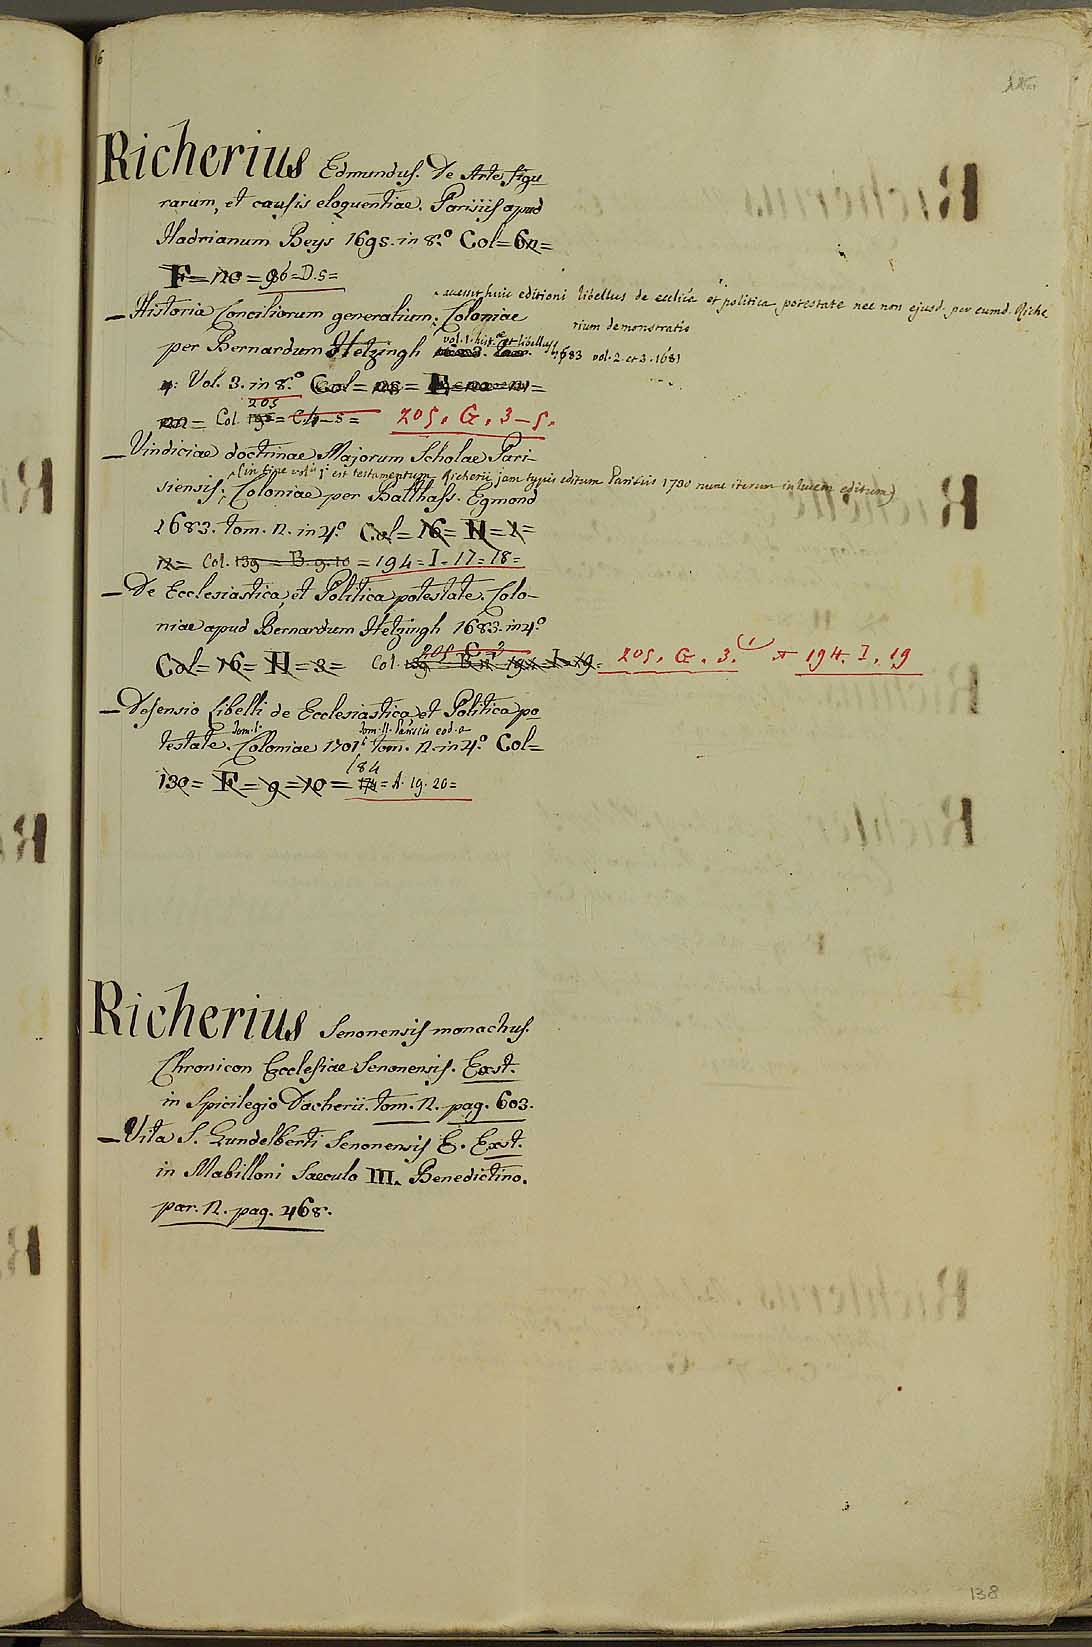 Richerius Edmundus. De Arte figu
rarum, et causis eloquentiae. Parisiis apud
Hadrianum Beys 1695. in 8.º Col= 6n=
F= no = 96=D.5=
huic editioni libellus de ecclica et politica potestate nec non ejusd. per eumd. Riche
rium demonstratio
_ Historia Conciliorum generalium. Coloniae
vol. 1. hist.ae et libellus 1683 vol. 2. et 3. 1681
per Bernardum Hetzingh
Vol. 3. in 8.º Col=
205
Col. = C. 4-5= 205. G. 3-5.
_ Vindiciae doctrinae Majorum Scholae Pari-
(in fine est testamentum Richerii jam typis editum Parisiis 1730 nunc iterum in lucem editum)
siensis; Coloniae per Balthass. Egmond
1683. tom. n. in 4º Col= 16= H= 1=
12= Col. 139 = B. 9. 10 = 194= I. 17= 18=
_ De Ecclesiastica, et Politica potestate. Colo-
niae apud Bernardum Hetzingh 1683. in 4º
Col= 16= H= 3= Col. 205. G. 3. 194. I. 19
_ Defensio Libelli de Ecclesiastica et Politica po
tom. I. tom. II. Parisiis eod. a.
testate. Coloniae 1701 tom. n. in 4º Col=
184
130= F= 9= 10= 174= A. 19. 20=
Richerius Senonensis monachus.
Chronicon Ecclesiae Senonensis. Exst.
in Spicilegio Dacherii. tom. n. pag. 603.
_ Vita S. Gundelberti Senonensis E. Exst.
in Mabilloni Saeculo III. Benedictino.
par. n. pag. 468.
138